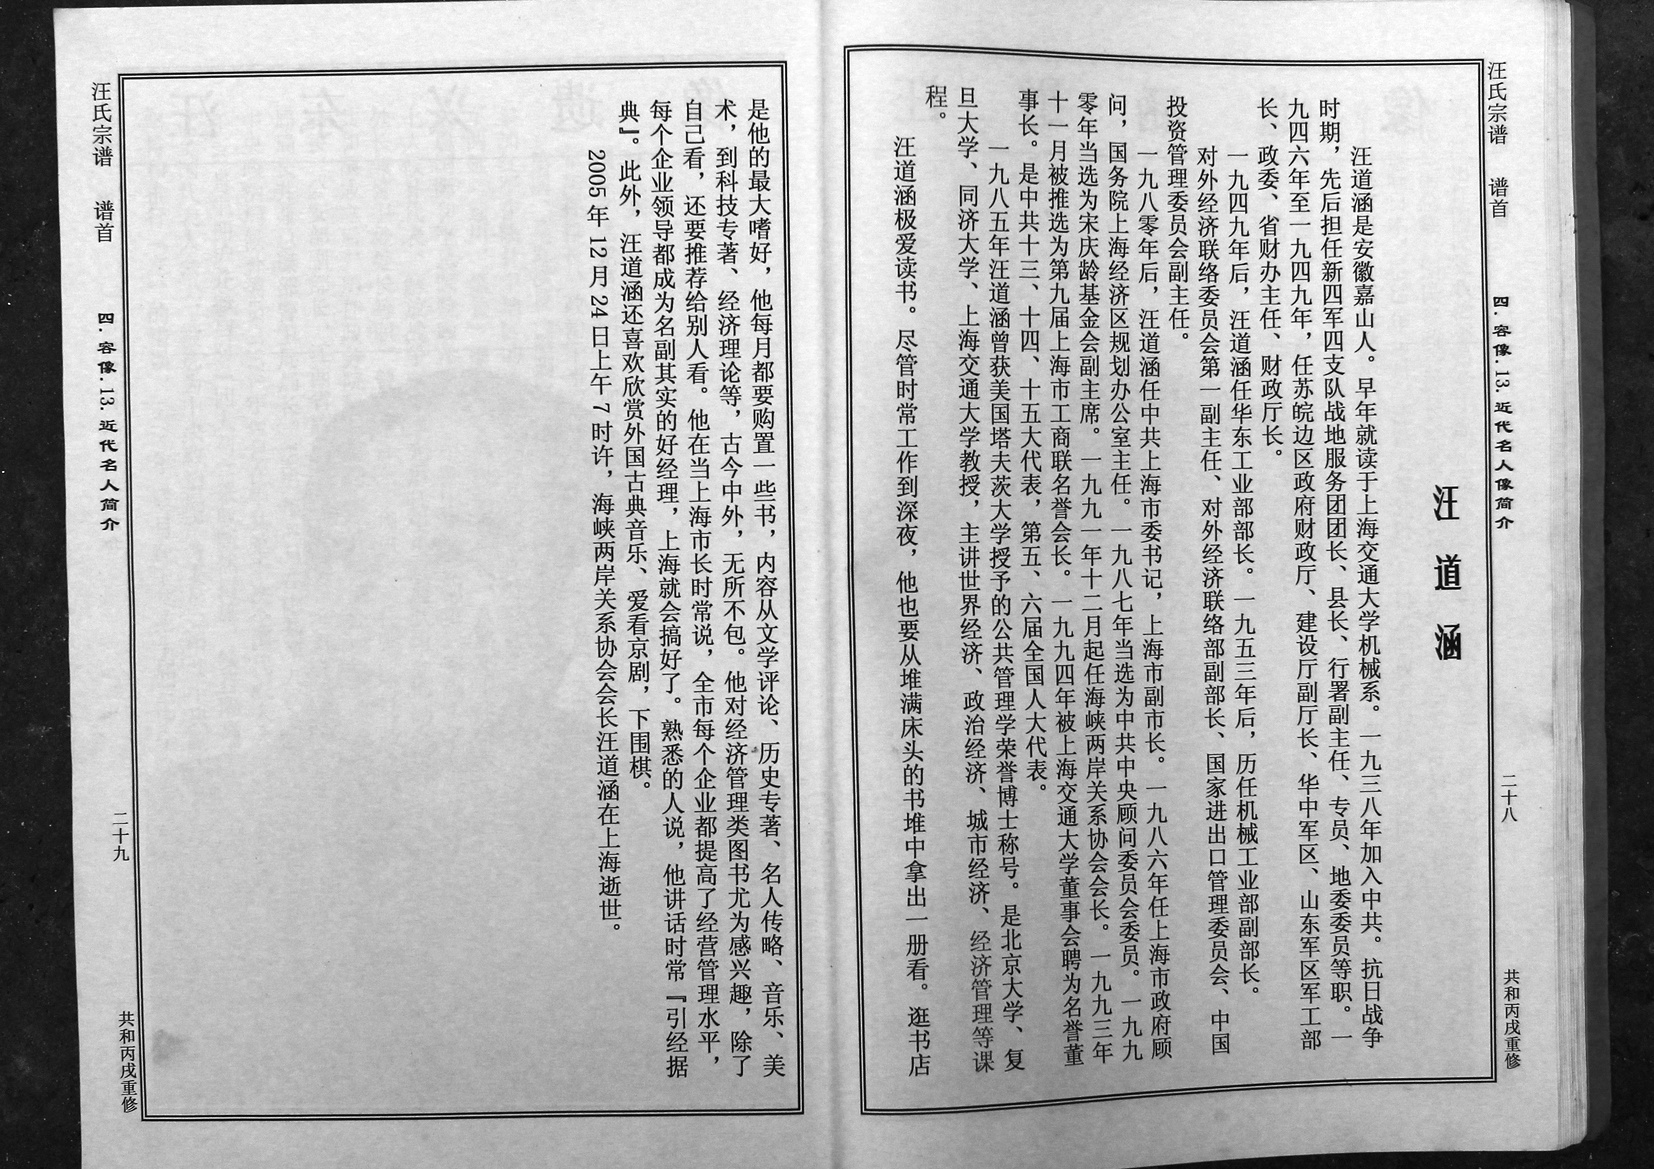 汪氏宗谱 谱首 四.容像.13.近代名人像简介 二十八 共和丙戌重修
汪道涵
汪道涵是安徽嘉山人。早年就读于上海交通大学机械系。一九三八年加入中共。抗日战争
时期，先后担任新四军四支队战地服务团团长、县长、行署副主任、专员、地委委员等职。一
九四六年至一九四九年，任苏皖边区政府财政厅、建设厅副厅长、华中军区、山东军区军工部
长、政委、省财办主任、财政厅长。
一九四九年后，汪道涵任华东工业部部长。一九五三年后，历任机械工业部副部长。
对外经济联络委员会第一副主任、对外经济联络部副部长、国家进出口管理委员会、中国
投资管理委员会副主任。
一九八零年后，汪道涵任中共上海市委书记，上海市副市长。一九八六年任上海市政府顾
问，国务院上海经济区规划办公室主任。一九八七年当选为中共中央顾问委员会委员。一九九
零年当选为宋庆龄基金会副主席。一九九一年十二月起任海峡两岸关系协会会长。一九九三年
十一月被推选为第九届上海市工商联名誉会长。一九九四年被上海交通大学董事会聘为名誉董
事长。是中共十三、十四、十五大代表，第五、六届全国人大代表。
一九八五年汪道涵曾获美国塔夫茨大学授予的公共管理学荣誉博士称号。是北京大学、复
旦大学、同济大学、上海交通大学教授，主讲世界经济、政治经济、城市经济、经济管理等课
程。
汪道涵极爱读书。尽管时常工作到深夜，他也要从堆满床头的书堆中拿出一册看。逛书店
是他的最大嗜好，他每月都要购置一些书，内容从文学评论、历史专著、名人传略、音乐、美
术，到科技专著、经济理论等，古今中外，无所不包。他对经济管理类图书尤为感兴趣，除了
自己看，还要推荐给别人看。他在当上海市长时常说，全市每个企业都提高了经营管理水平，
每个企业领导都成为名副其实的好经理，上海就会搞好了。熟悉的人说，他讲话时常『引经据
典』。此外，汪道涵还喜欢欣赏外国古典音乐、爱看京剧，下围棋。
2005年12月24日上午7时许，海峡两岸关系协会会长汪道涵在上海逝世。
汪氏宗谱 谱首 四.容像.13.近代名人像简介 二十九 共和丙戌重修